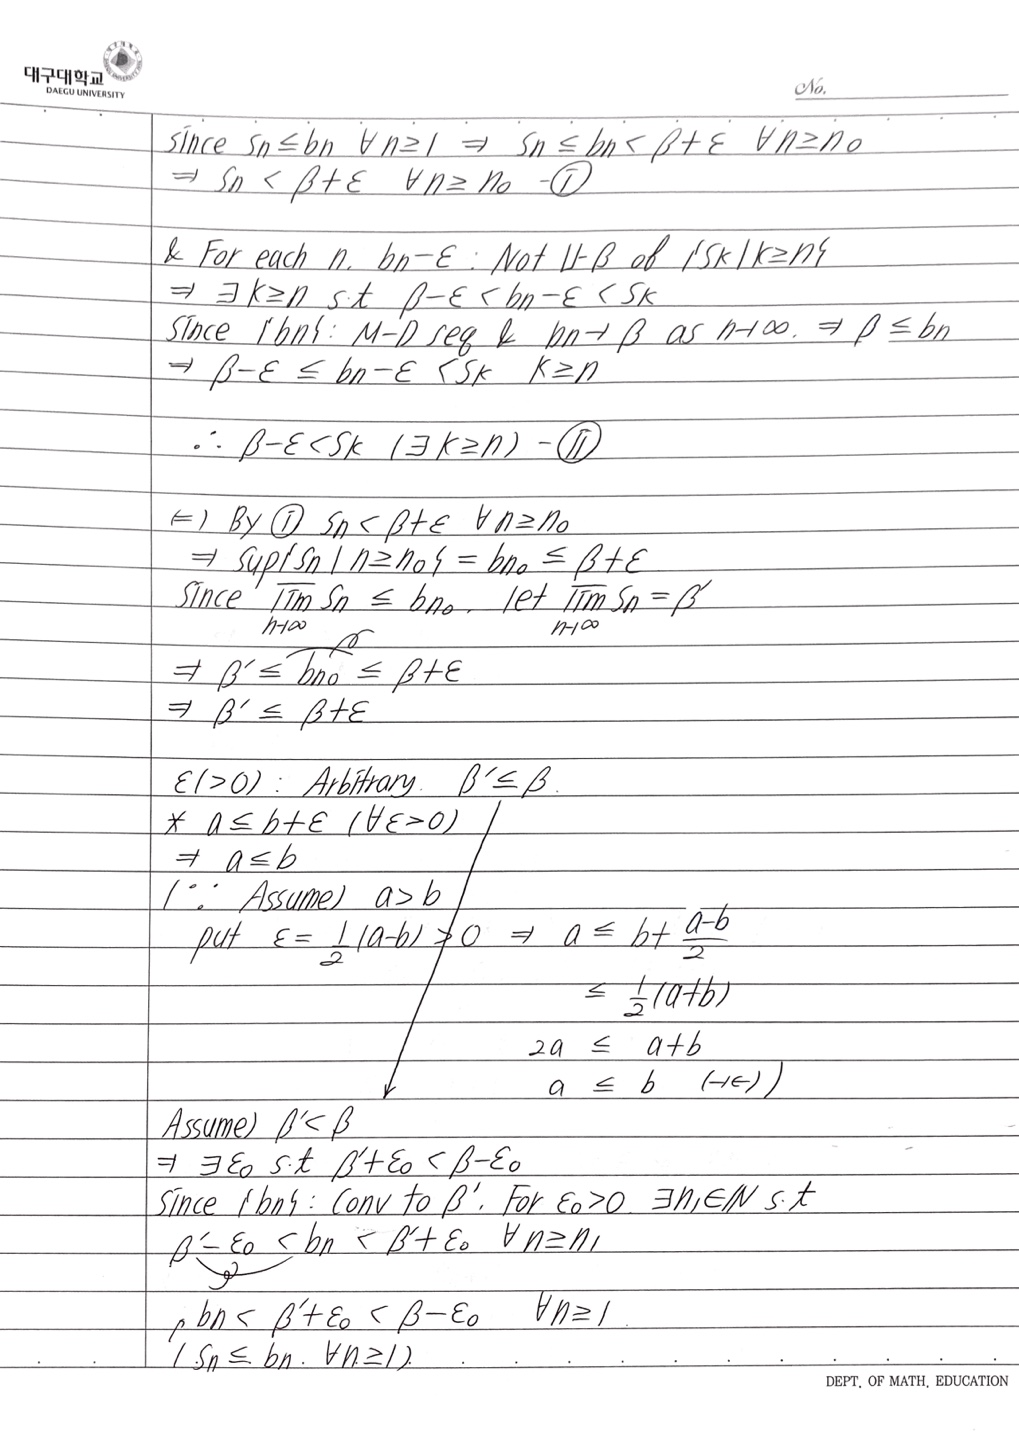 대구대학교
DAEGU UNIVERSITY
No.
since Sn ≤ bn ∀n≥1 ⇒ Sn ≤ bn < β+ε ∀n≥n₀
⇒ Sn < β+ε ∀n≥n₀ -Ⓘ
& For each n. bn-ε : Not U-B of {Sk|k≥n}
⇒ ∃k≥n s.t β-ε < bn-ε < Sk
Since {bn} : M-D seq & bn→β as n→∞. ⇒ β ≤ bn
⇒ β-ε ≤ bn-ε < Sk k≥n
∴ β-ε < Sk (∃k≥n) -Ⅱ
⇐) By Ⓘ Sn < β+ε ∀n≥n₀
⇒ sup{Sn | n≥n₀} = bn₀ ≤ β+ε
Since lim Sn ≤ bn₀. let lim Sn = β′
n→∞ n→∞
⇒ β′ ≤ bn₀ ≤ β+ε
⇒ β′ ≤ β+ε
ε(>0) : Arbitrary. β′ ≤ β.
* a ≤ b+ε (∀ε>0)
⇒ a ≤ b
(∵ Assume) a > b
put ε = 1/2 (a-b) > 0 ⇒ a ≤ b + (a-b)/2
≤ 1/2 (a+b)
2a ≤ a+b
a ≤ b (→←))
Assume) β′ < β
⇒ ∃ε₀ s.t β′+ε₀ < β-ε₀
Since {bn} : Conv to β′. For ε₀>0 ∃n₁∈N s.t
β′-ε₀ < bn < β′+ε₀ ∀n≥n₁
bn < β′+ε₀ < β-ε₀ ∀n≥1
(Sn ≤ bn. ∀n≥1)
DEPT. OF MATH. EDUCATION